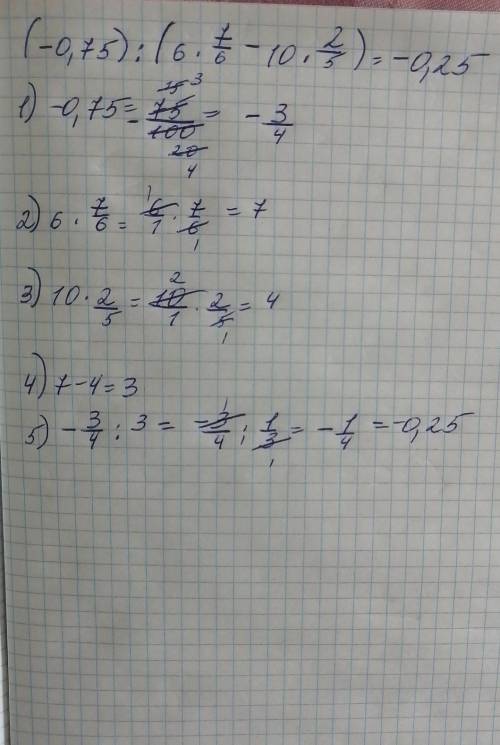 (-0,75) : (6 · 7/6 - 10 · 2/5) = -0,25
1) -0,75 = -75/100 = -3/4
15 3
20
4
2) 6 · 7/6 = 6/1 · 7/6 = 7
1
1
3) 10 · 2/5 = 10/1 · 2/5 = 4
2
1
4) 7-4=3
5) -3/4 : 3 = -3/4 : 1/3 = -1/4 = -0,25
1
1